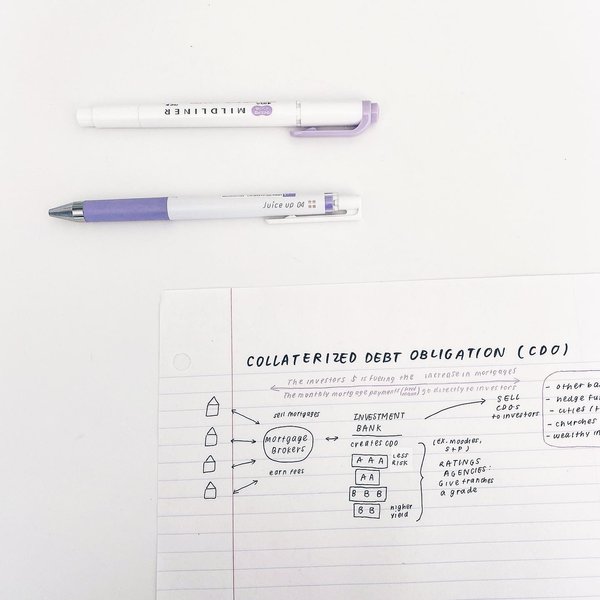 MILDLINER
Juice up 04
COLLATERIZED DEBT OBLIGATION (CDO)
The investors $ is fueling the increase in mortgages
The monthly mortgage payments go directly to investors
sell mortgages
Mortgage
Brokers
earn fees
INVESTMENT
BANK
creates CDO
A A A
LESS
RISK
AA
B B B
B B
higher
yield
(ex. moodies,
S+P)
RATINGS
AGENCIES:
Give tranches
a grade
SELL
CDOs
to investors
- other ba
- hedge fu
- cities /
- churches
- wealthy in